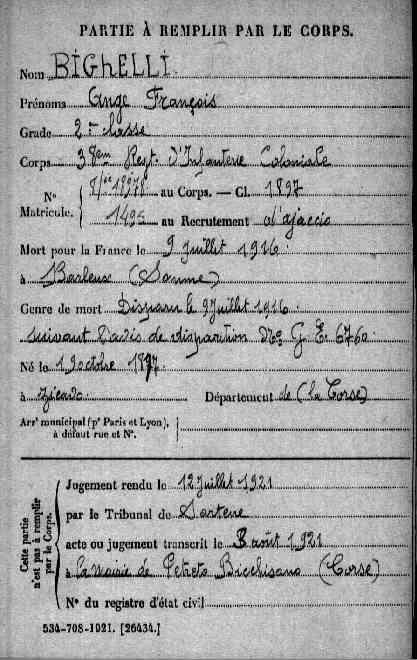 PARTIE À REMPLIR PAR LE CORPS.
Nom BIGHELLI.
Prénoms Ange François
Grade 2me classe
Corps 38em Regt. d'Infanterie Coloniale
No Matricule. 18978 au Corps. — Cl. 1897
1495 au Recrutement d'ajaccio
Mort pour la France le 9 Juillet 1916.
à Barleux (Somme)
Genre de mort Disparu le 9 Juillet 1916.
suivant l'avis de disparition No G. E. 6760.
Né le 19 octobre
à Zicavo. Département de (la Corse)
Arrt municipal (pr Paris et Lyon),
à défaut rue et No.
Cette partie n'est pas à remplir par le Corps.
Jugement rendu le 12 Juillet 1921
par le Tribunal de Sartene
acte ou jugement transcrit le 8 août 1921
à la Mairie de Petreto Bicchisano (Corse)
No du registre d'état civil
534-708-1921. [26434.]